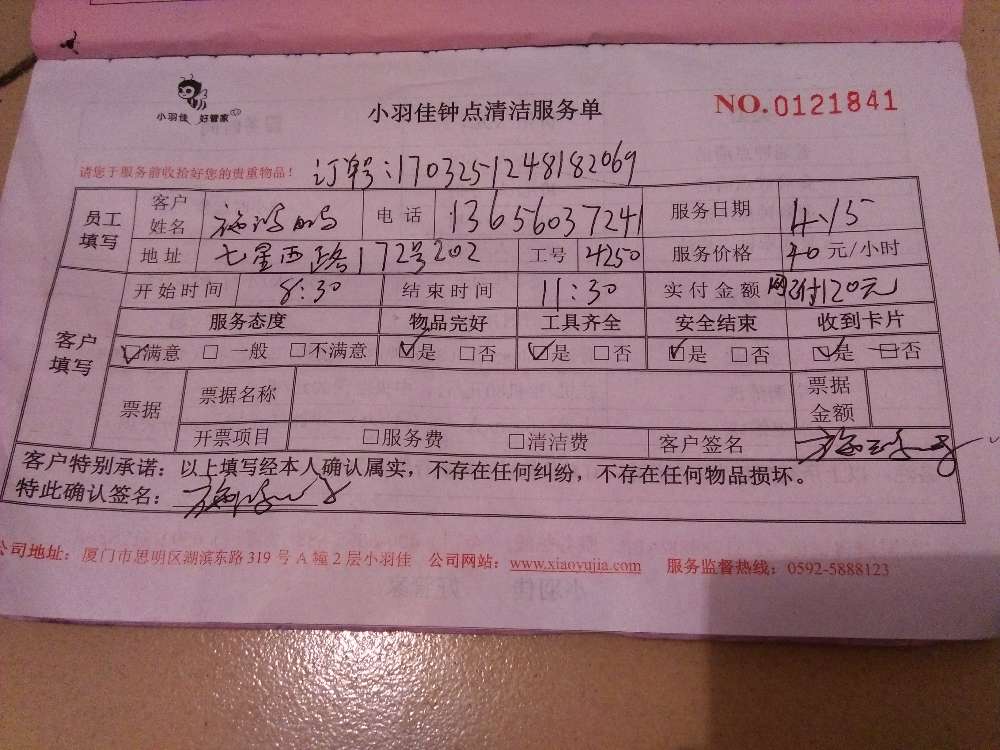 小羽佳 好管家
小羽佳钟点清洁服务单
NO.0121841
请您于服务前收拾好您的贵重物品!
订单号:170325124818 2069
员工填写 客户姓名 电话 13656037241 服务日期 4.15
地址 七星西路172号202 工号 4250 服务价格 40 元/小时
客户填写 开始时间 8:30 结束时间 11:30 实付金额 网付120元
服务态度 物品完好 工具齐全 安全结束 收到卡片
☑满意 □一般 □不满意 ☑是 □否 ☑是 □否 ☑是 □否 ☑是 □否
票据 票据名称 票据金额
开票项目 □服务费 □清洁费 客户签名
客户特别承诺:以上填写经本人确认属实,不存在任何纠纷,不存在任何物品损坏。
特此确认签名:
公司地址:厦门市思明区湖滨东路 319 号 A 幢 2 层小羽佳 公司网站:www.xiaoyujia.com 服务监督热线:0592-5888123